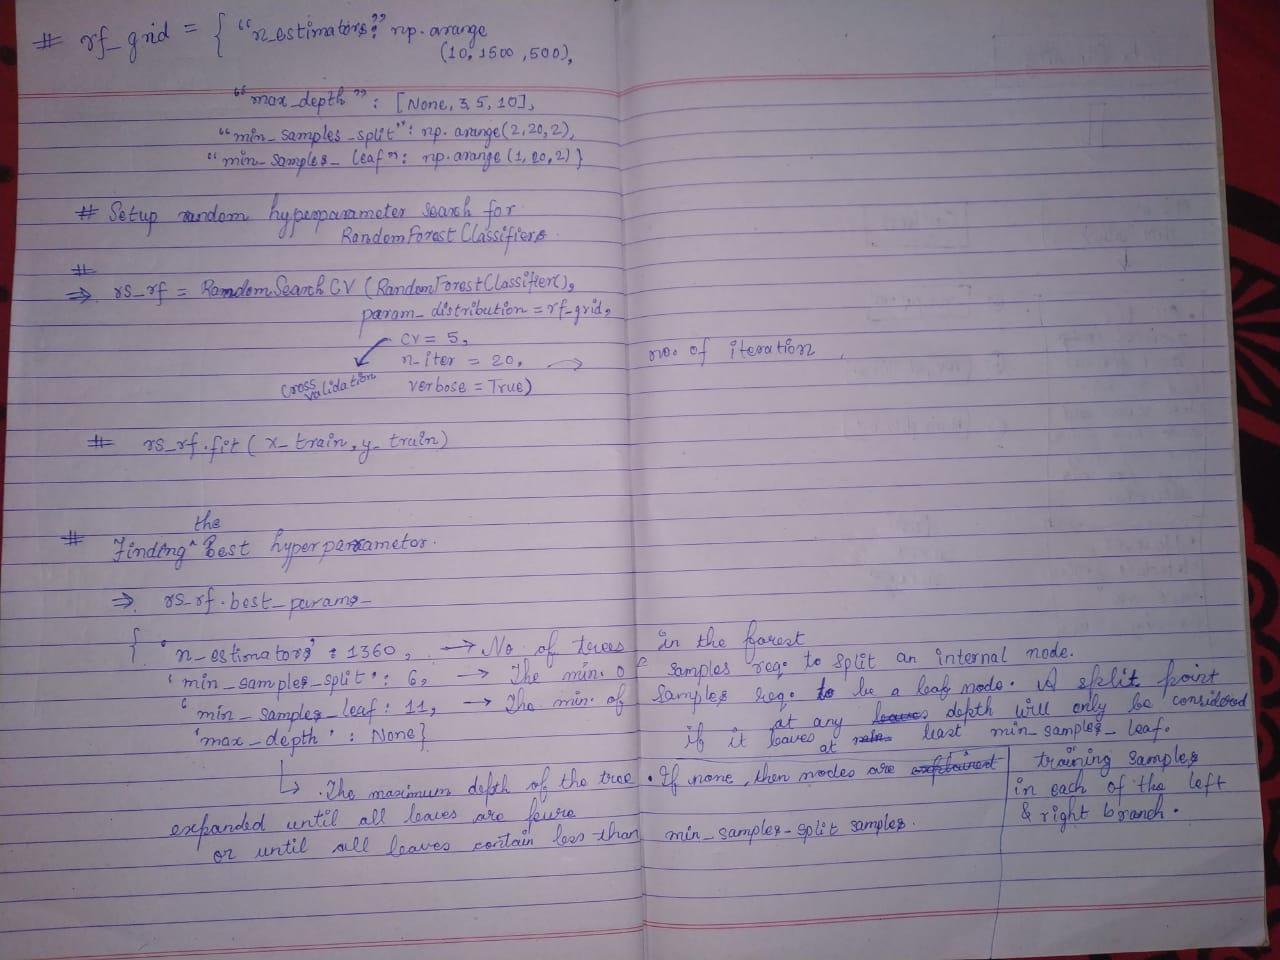 # rf_grid = { "n_estimators": np.arange
(10, 1500, 500),
"max_depth": [None, 3, 5, 10],
"min_samples_split": np.arange(2,20,2),
"min_samples_leaf": np.arange(1,20,2)}
# Setup random hyperparameter search for
RandomForestClassifiers
#
⇒ rs_rf = RandomSearchCV (RandomForestClassifier(),
param_distribution = rf_grid,
cv = 5,
n_iter = 20, → no. of iteration
cross validation verbose = True)
# rs_rf.fit(x_train, y_train)
# Finding the Best hyperparametor.
⇒ rs_rf.best_params_
{ 'n_estimators' : 1360, → No of trees in the forest
'min_samples_split': 6, → The min. of samples req. to split an internal node.
'min_samples_leaf: 11, → The min. of samples req. to be a leaf node. A split point
'max_depth' : None} at any depth will only be considered
if it leaves at least min_samples_leaf.
training samples
in each of the left
& right branch.
↳ . The maximum depth of the tree. If none, then nodes are
expanded until all leaves are peure
or until all leaves contain less than min_samples_split samples.